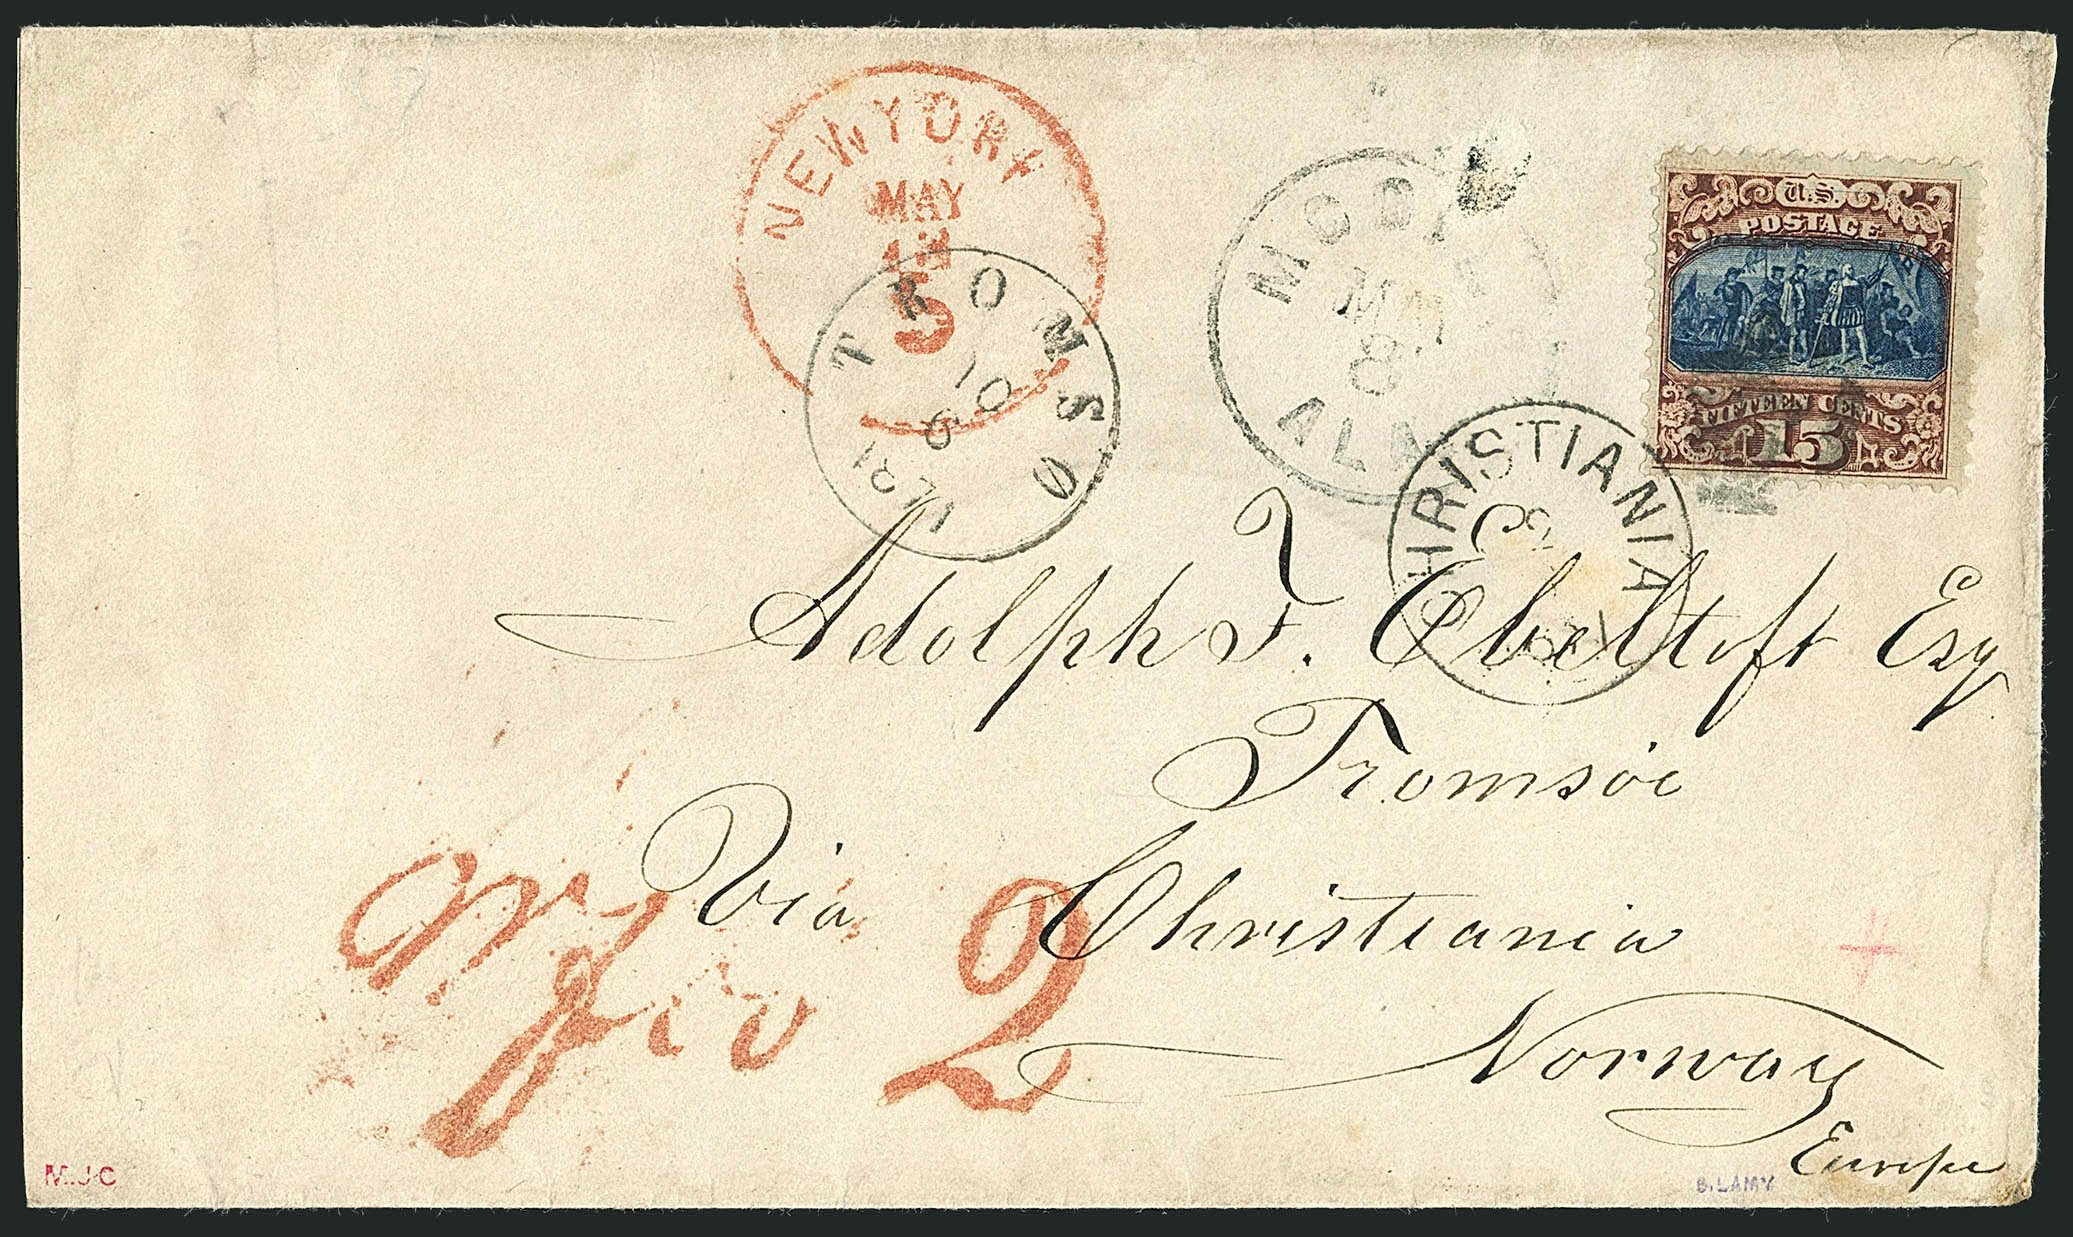 NEW YORK
MAY
13
5
TROMSØ
10
6
1871
MOBI
MAY
8
ALA
CHRISTIANIA
U.S.
POSTAGE
FIFTEEN CENTS
15
Adolph F. Ebeltoft Esq
Tromsöe
Via Christiania
2
Norway
Europe
M.J.C
B. LAMY